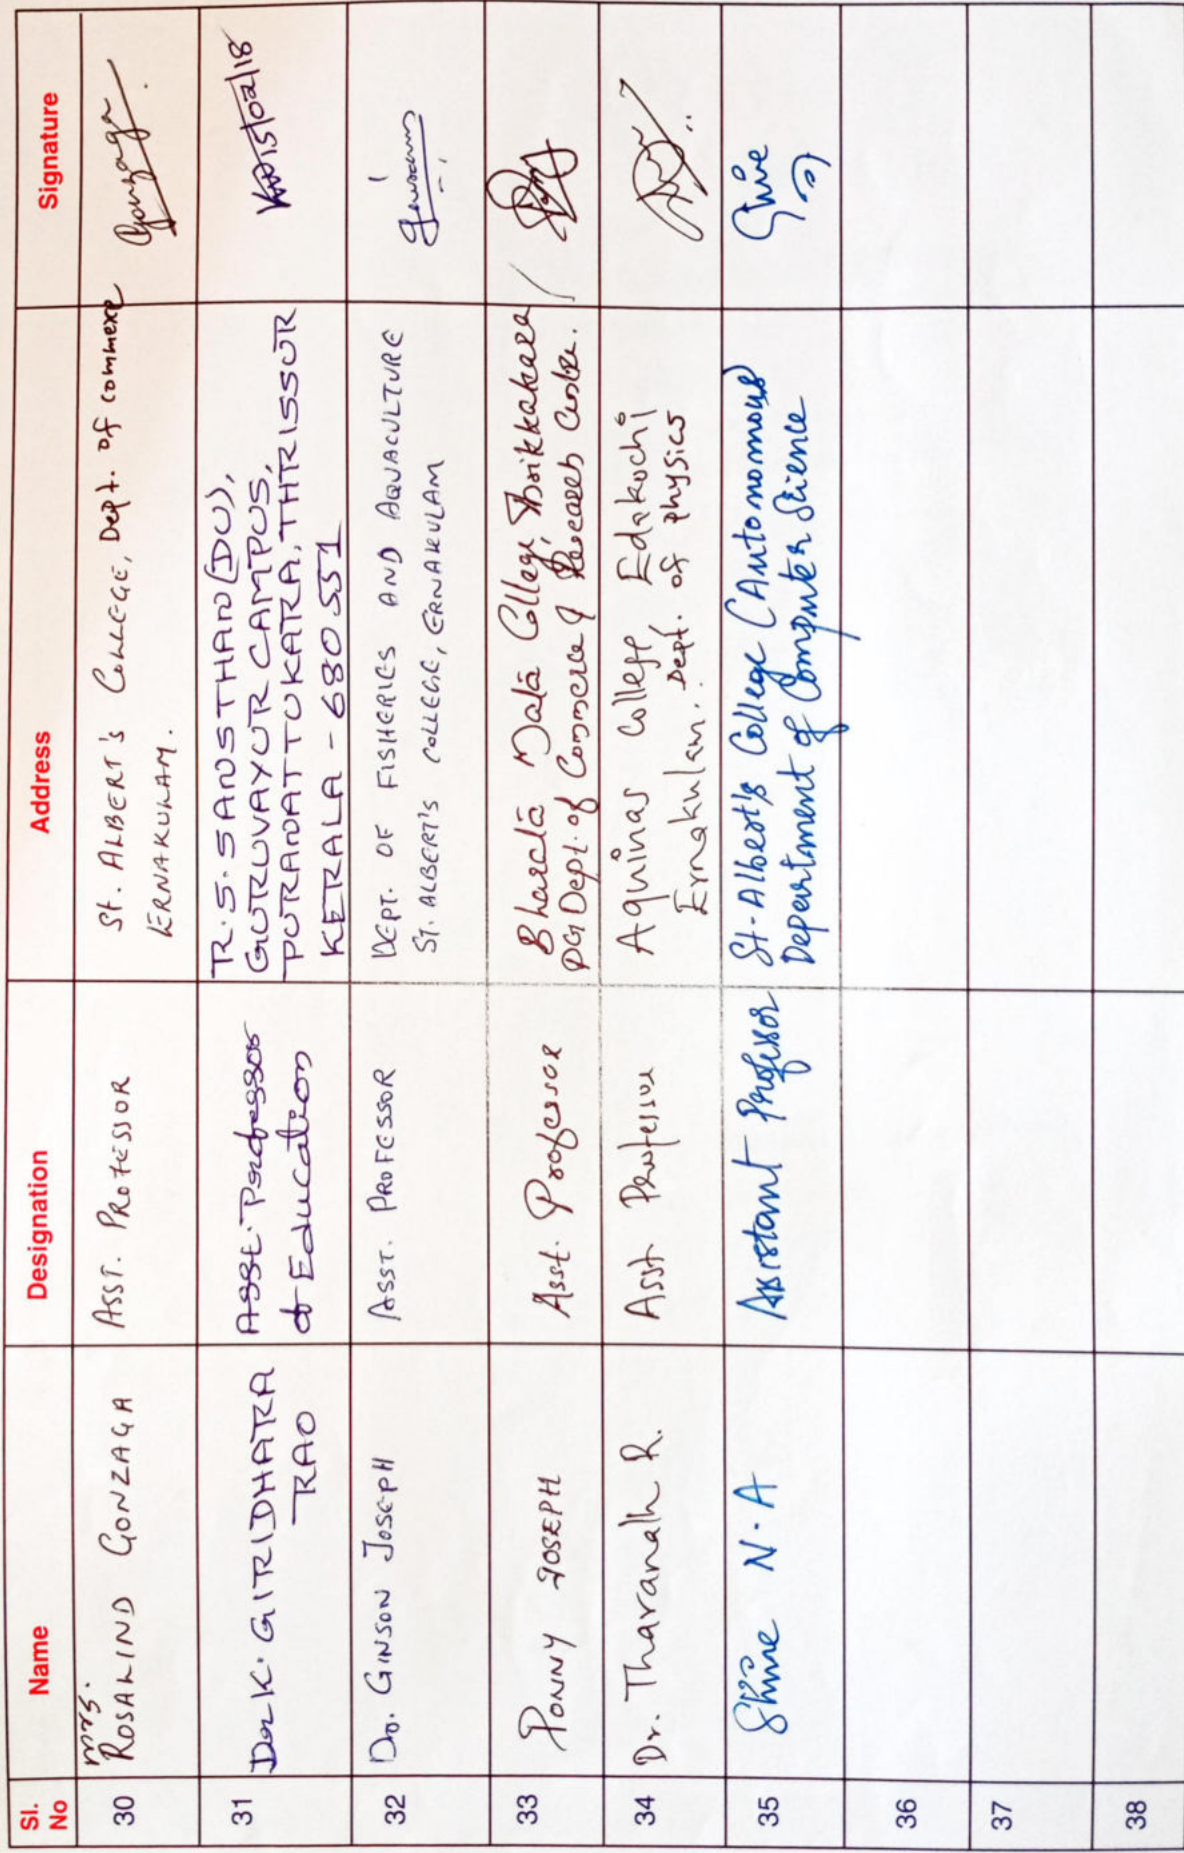 Sl. No Name Designation Address Signature
30 Mrs. ROSALIND GONZAGA ASST. PROFESSOR St. ALBERT'S COLLEGE, Dept. of commerce Gonzaga
ERNAKULAM.
31 Dr. K. GIRIDHARA Asst. Professor R.S. SANSTHAN (DU),
RAO of Education GURUVAYUR CAMPUS,
PURANATTUKARA, THRISSUR
KERALA - 680 551
32 Dr. GINSON JOSEPH ASST. PROFESSOR DEPT. OF FISHERIES AND AQUACULTURE
ST. ALBERT'S COLLEGE, ERNAKULAM
33 PONNY JOSEPH Asst. Professor Bharata Mata College, Thrikkakara
PG Dept. of Commerce & Research Centre.
34 Dr. Tharanath R. Asst Professor Aquinas College Edakochi
Ernakulam. Dept. of physics
35 Shine N.A Assistant Professor St. Albert's College (Autonomous)
Department of Computer Science
36
37
38